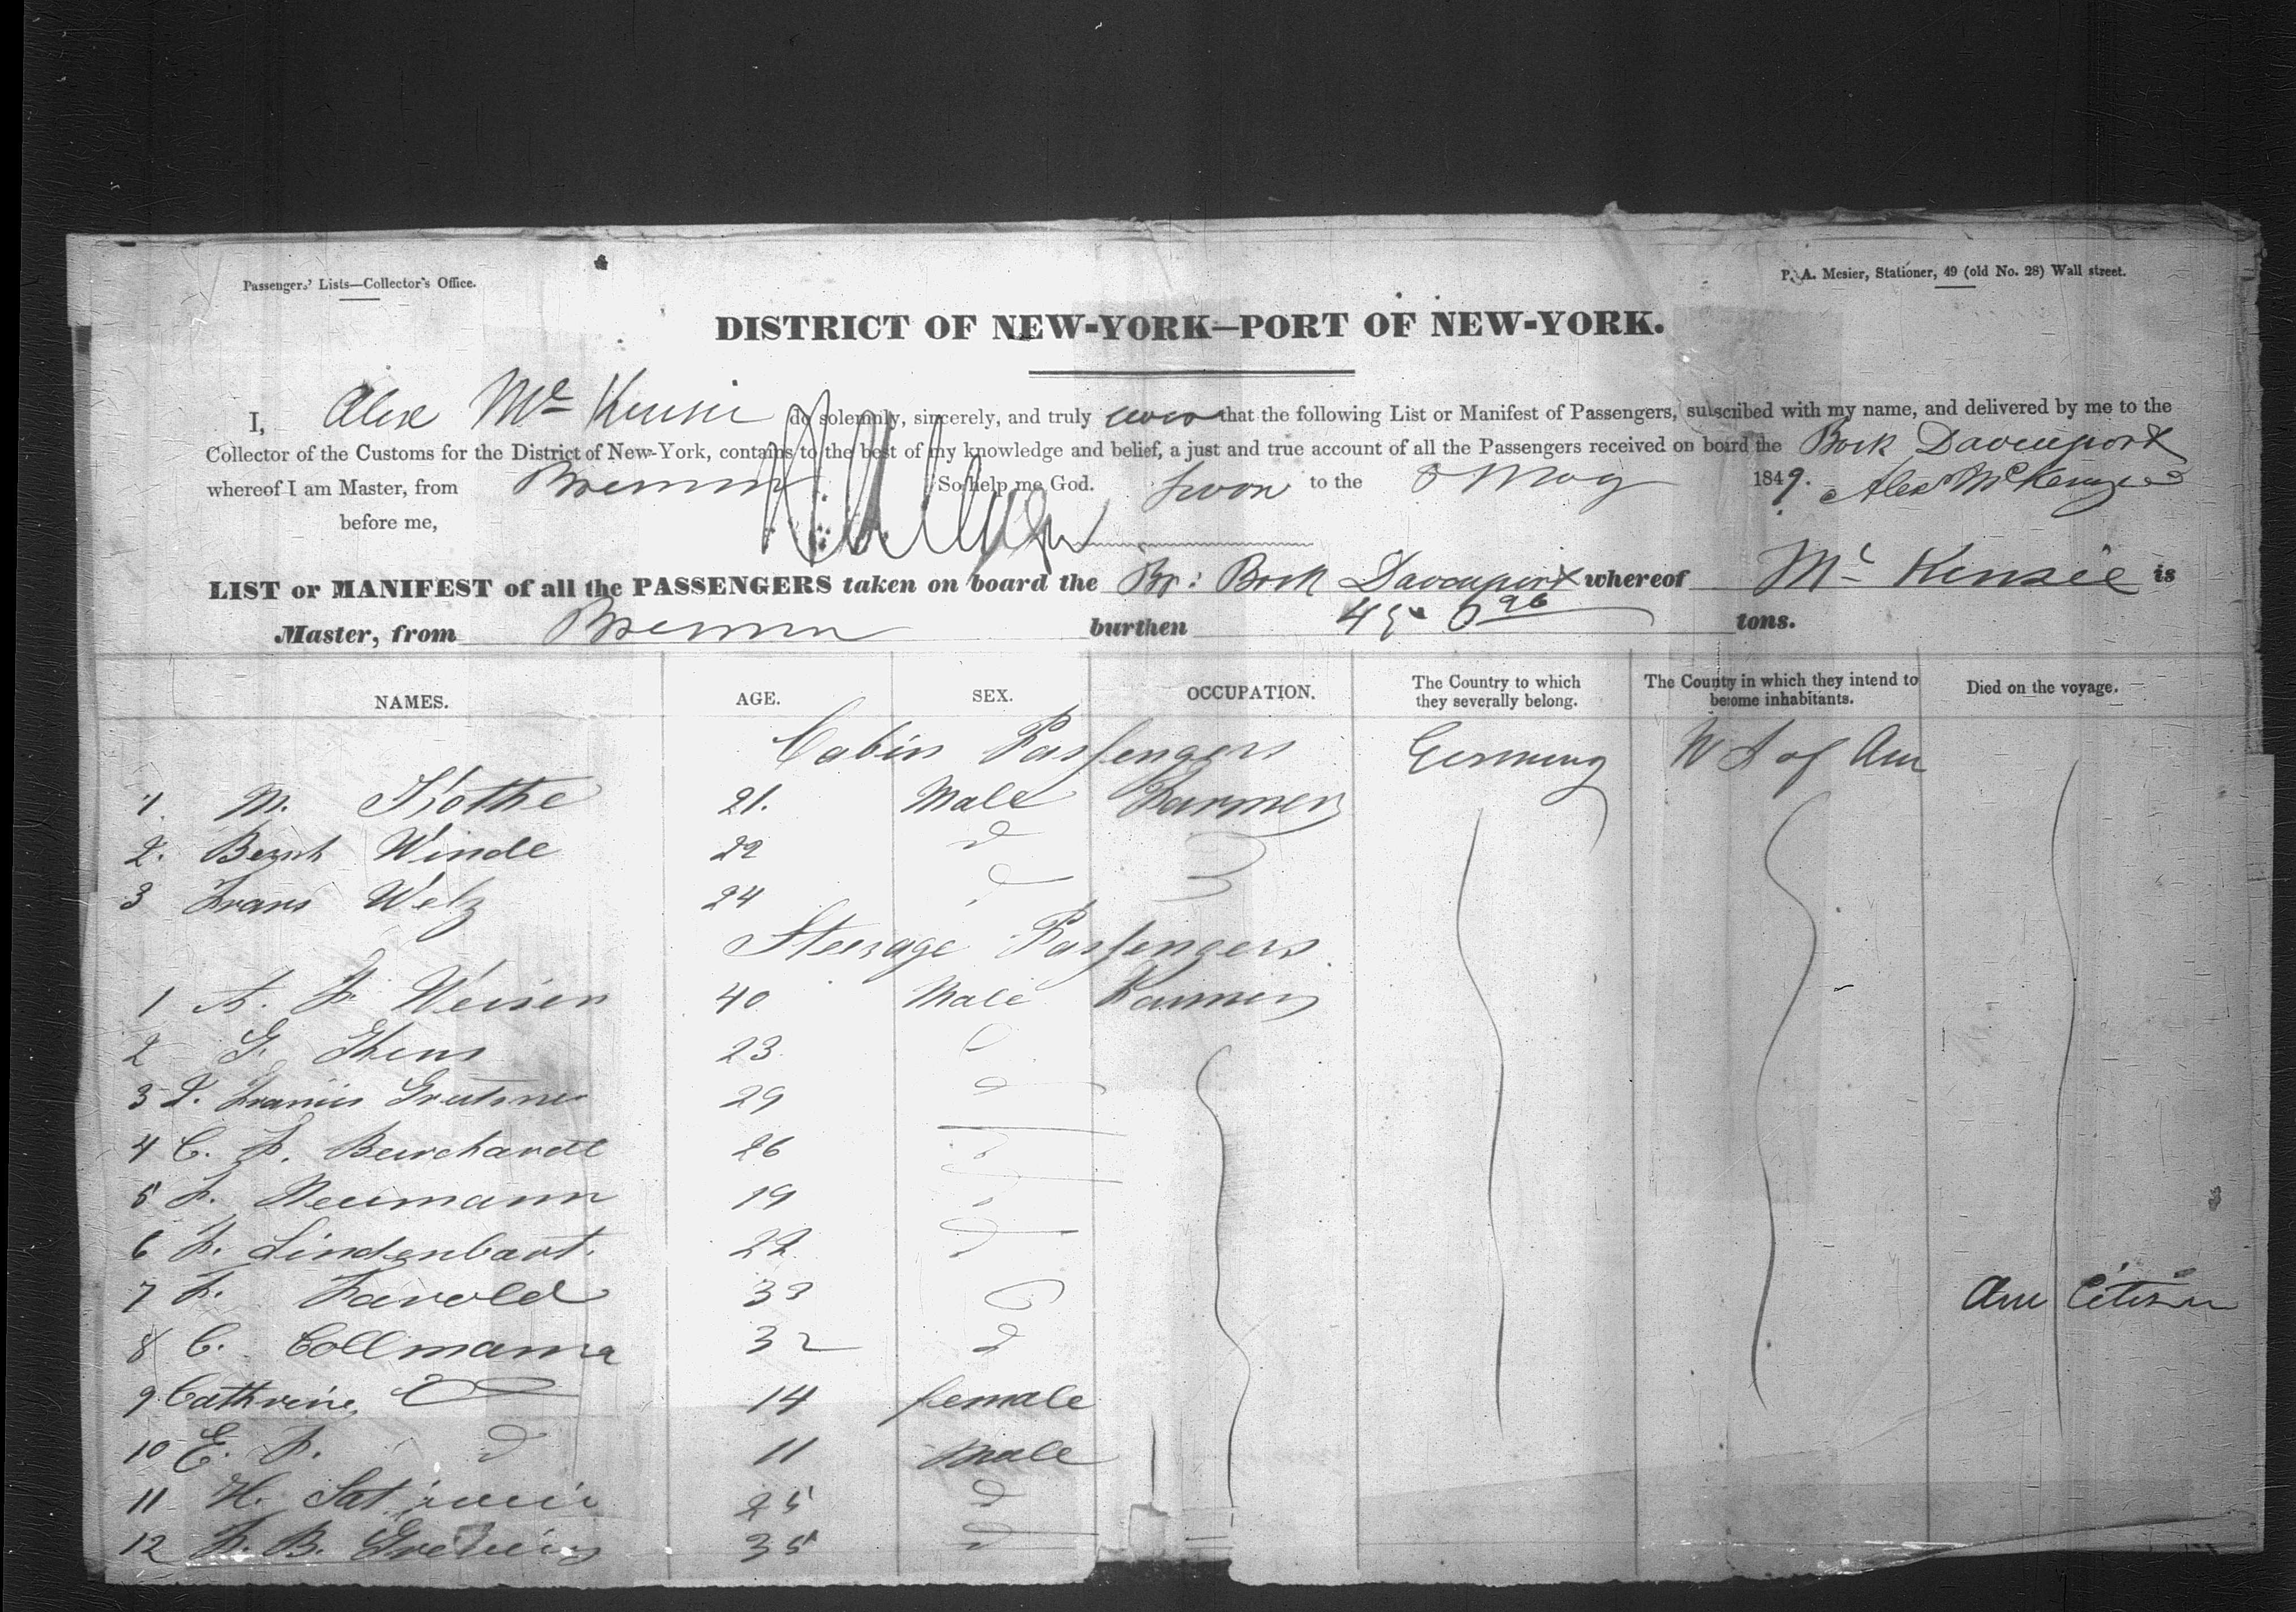 Passengers' Lists—Collector's Office.
P. A. Mesier, Stationer, 49 (old No. 28) Wall street.
DISTRICT OF NEW-YORK—PORT OF NEW-YORK.
I, Alex Mc Kensie do solemnly, sincerely, and truly that the following List or Manifest of Passengers, subscribed with my name, and delivered by me to the
Collector of the Customs for the District of New-York, contains to the best of my knowledge and belief, a just and true account of all the Passengers received on board the Bark Davenport
whereof I am Master, from Bremen So help me God. Sworn to the 8 May 1849. Alex McKenzie
before me,
LIST or MANIFEST of all the PASSENGERS taken on board the Br: Bark Davenport whereof Mc Kensie is
Master, from Bremen burthen tons.
NAMES. AGE. SEX. OCCUPATION. The Country to which they severally belong. The Country in which they intend to become inhabitants. Died on the voyage.
Cabin Passengers Germany of Am
1. M. Kothe 21. Male Farmer
2. Winde 22 d
3 Frans Welz 24 d
Steerage Passengers
1 A. F. Meisen 40 Male Farmer
2 G. Ghens 23
3 29 d
4 C. F. Burchardt 26
5 F. Neumann 19
6 F. Lindenbart. 22 d
7 F. Farold 33 Am Citizen
8 C. Collmann 32 d
9 Cathrine d 14 female
10 E. F. d 11 Male
11 H. 25 d
12 F. B. 35 d